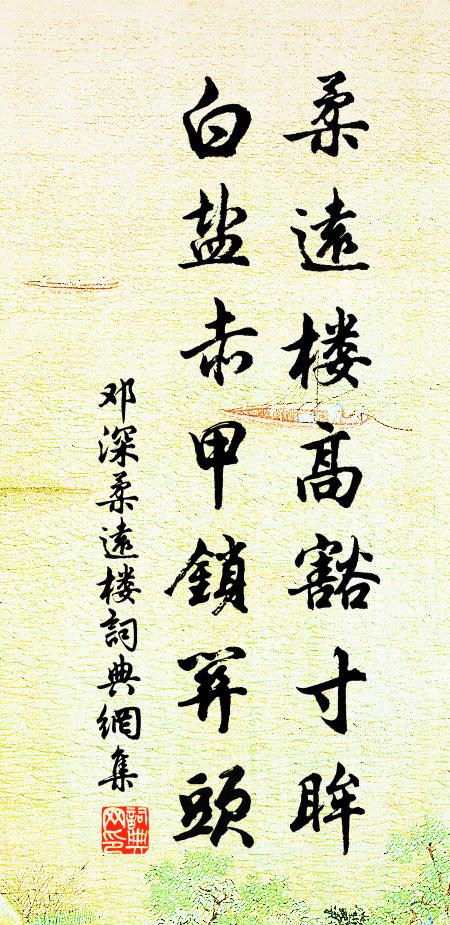 柔遠楼高豁寸眸
白盐赤甲鎖关頭
邓深柔遠楼詞典網集
詞典网印